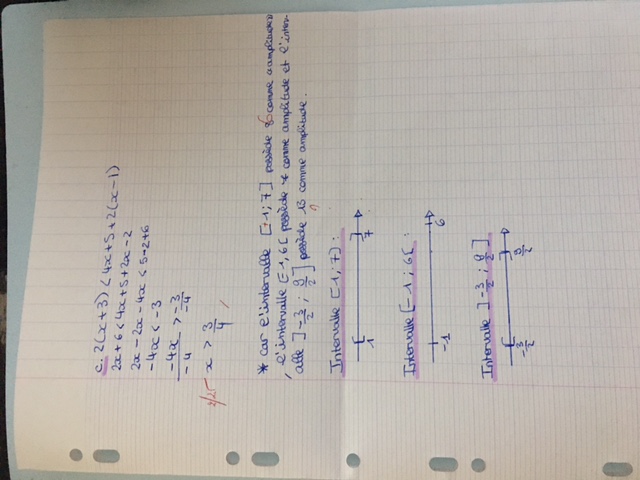 c. 2(x+3) < 4x+5+2(x-1)
2x+6 < 4x+5+2x-2
2x-2x-4x < 5-2+6
-4x < -3
-4x/-4 > -3/-4
2/2,5 x > 3/4
* car l'intervalle [1;7] possède 6 comme amplitude
, l'intervalle [-1,6[ possède * comme amplitude et l'inter-
valle ]-3/2 ; 9/2] possède 13 comme amplitude.
?
Intervalle [1;7] :
1 7
Intervalle [-1;6[ :
-1 6
Intervalle ]-3/2 ; 9/2]
-3/2 9/2